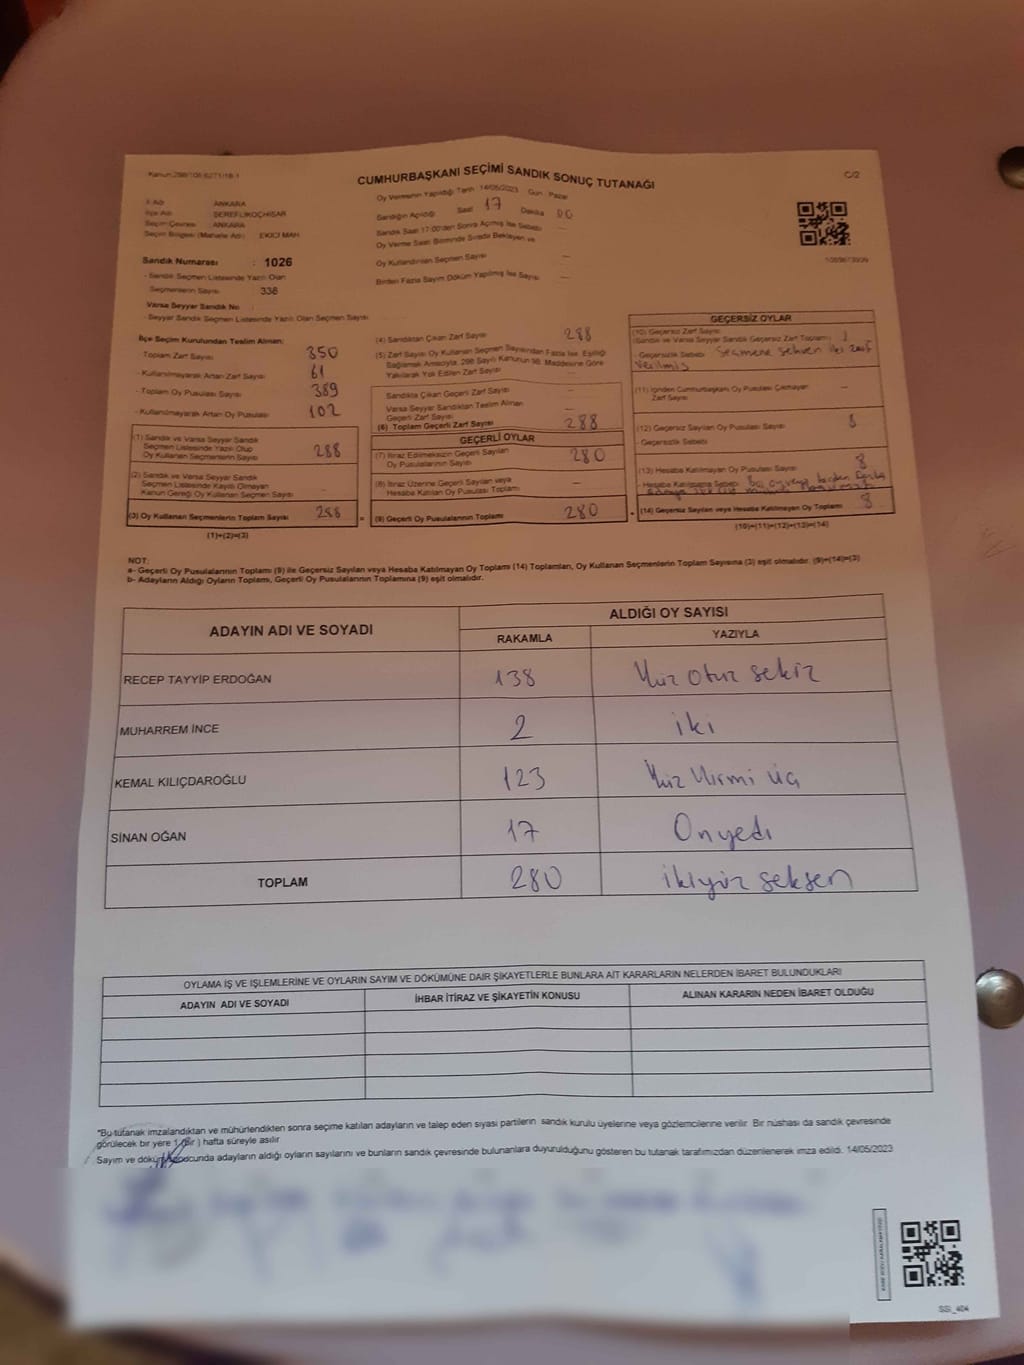 Kanun:298/105 6271/18-1
CUMHURBAŞKANI SEÇİMİ SANDIK SONUÇ TUTANAĞI
C/2
İl Adı : ANKARA
İlçe Adı : ŞEREFLİKOÇHİSAR
Seçim Çevresi : ANKARA
Seçim Bölgesi (Mahalle Adı) : EKİCİ MAH
Oy Vermenin Yapıldığı Tarih 14/05/2023 Gün Pazar
Sandığın Açıldığı Saat 17 Dakika 00
Sandık Saat 17:00'den Sonra Açılmış İse Sebebi —
Oy Verme Saati Bitiminde Sırada Bekleyen ve
Oy Kullandırılan Seçmen Sayısı —
Birden Fazla Sayım Döküm Yapılmış İse Sayısı —
Sandık Numarası : 1026
- Sandık Seçmen Listesinde Yazılı Olan
Seçmenlerin Sayısı : 338
Varsa Seyyar Sandık No
- Seyyar Sandık Seçmen Listesinde Yazılı Olan Seçmen Sayısı
İlçe Seçim Kurulundan Teslim Alınan:
Toplam Zarf Sayısı 350
- Kullanılmayarak Artan Zarf Sayısı 61
- Toplam Oy Pusulası Sayısı 389
- Kullanılmayarak Artan Oy Pusulası 102
(1) Sandık ve Varsa Seyyar Sandık
Seçmen Listesinde Yazılı Olup
Oy Kullanan Seçmenlerin Sayısı 288
(2) Sandık ve Varsa Seyyar Sandık
Seçmen Listesinde Kayıtlı Olmayan
Kanun Gereği Oy Kullanan Seçmen Sayısı —
(3) Oy Kullanan Seçmenlerin Toplam Sayısı 288
(1)+(2)=(3)
(4) Sandıktan Çıkan Zarf Sayısı 288
(5) Zarf Sayısı Oy Kullanan Seçmen Sayısından Fazla İse, Eşitliği
Sağlamak Amacıyla, 298 Sayılı Kanunun 98. Maddesine Göre
Yakılarak Yok Edilen Zarf Sayısı —
Sandıkta Çıkan Geçerli Zarf Sayısı —
Varsa Seyyar Sandıktan Teslim Alınan
Geçerli Zarf Sayısı —
(6) Toplam Geçerli Zarf Sayısı 288
GEÇERLİ OYLAR
(7) İtiraz Edilmeksizin Geçerli Sayılan
Oy Pusulalarının Sayısı 280
(8) İtiraz Üzerine Geçerli Sayılan veya
Hesaba Katılan Oy Pusulası Toplamı —
(9) Geçerli Oy Pusulalarının Toplamı 280
GEÇERSİZ OYLAR
(10) Geçersiz Zarf Sayısı
(Sandık ve Varsa Seyyar Sandık Geçersiz Zarf Toplamı) 1
- Geçersizlik Sebebi Seçmene sehven iki zarf
verilmiş
(11) İçinden Cumhurbaşkanı Oy Pusulası Çıkmayan
Zarf Sayısı —
(12) Geçersiz Sayılan Oy Pusulası Sayısı 8
- Geçersizlik Sebebi
(13) Hesaba Katılmayan Oy Pusulası Sayısı 8
- Hesaba Katılmama Sebebi birden fazla
(14) Geçersiz Sayılan veya Hesaba Katılmayan Oy Toplamı 8
(10)+(11)+(12)+(13)=(14)
NOT:
a- Geçerli Oy Pusulalarının Toplamı (9) ile Geçersiz Sayılan veya Hesaba Katılmayan Oy Toplamı (14) Toplamları, Oy Kullanan Seçmenlerin Toplam Sayısına (3) eşit olmalıdır. (9)+(14)=(3)
b- Adayların Aldığı Oyların Toplamı, Geçerli Oy Pusulalarının Toplamına (9) eşit olmalıdır.
ADAYIN ADI VE SOYADI ALDIĞI OY SAYISI
RAKAMLA YAZIYLA
RECEP TAYYİP ERDOĞAN 138 Yüz otuz sekiz
MUHARREM İNCE 2 iki
KEMAL KILIÇDAROĞLU 123 Yüz Yirmi üç
SİNAN OĞAN 17 Onyedi
TOPLAM 280 ikiyüz seksen
OYLAMA İŞ VE İŞLEMLERİNE VE OYLARIN SAYIM VE DÖKÜMÜNE DAİR ŞİKAYETLERLE BUNLARA AİT KARARLARIN NELERDEN İBARET BULUNDUKLARI
ADAYIN ADI VE SOYADI İHBAR İTİRAZ VE ŞİKAYETİN KONUSU ALINAN KARARIN NEDEN İBARET OLDUĞU
*Bu tutanak imzalandıktan ve mühürlendikten sonra seçime katılan adayların ve talep eden siyasi partilerin sandık kurulu üyelerine veya gözlemcilerine verilir. Bir nüshası da sandık çevresinde
görülecek bir yere 1 (Bir) hafta süreyle asılır
Sayım ve döküm sonucunda adayların aldığı oyların sayılarını ve bunların sandık çevresinde bulunanlara duyurulduğunu gösteren bu tutanak tarafımızdan düzenlenerek imza edildi. 14/05/2023
SSİ_404